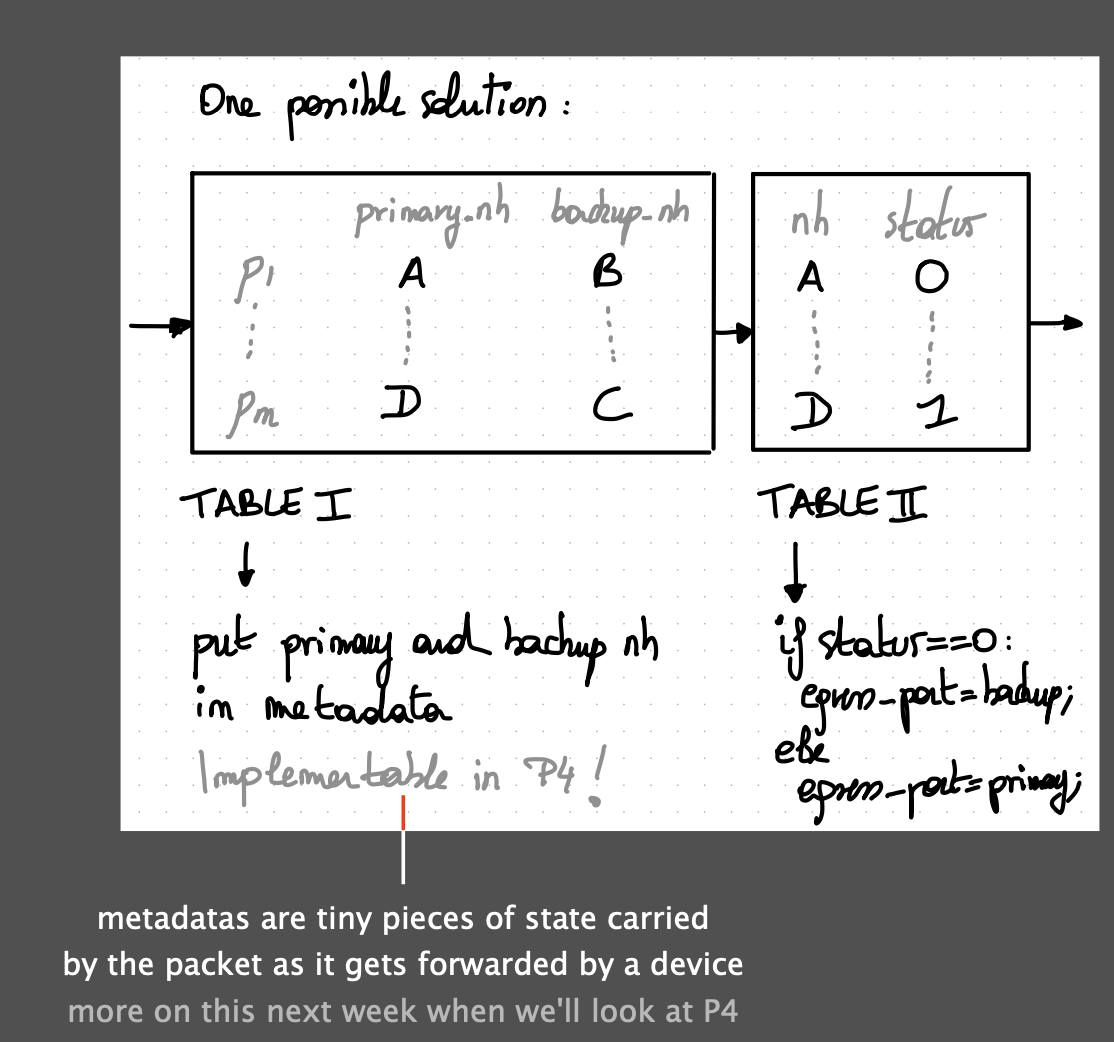 One possible solution :
primary_nh backup_nh
p1 A B
pm D C
nh status
A 0
D 1
TABLE I
put primary and backup nh
in metadata
Implementable in P4 !
TABLE II
if status==0:
egress_port=backup;
else
egress_port=primary;
metadatas are tiny pieces of state carried
by the packet as it gets forwarded by a device
more on this next week when we'll look at P4